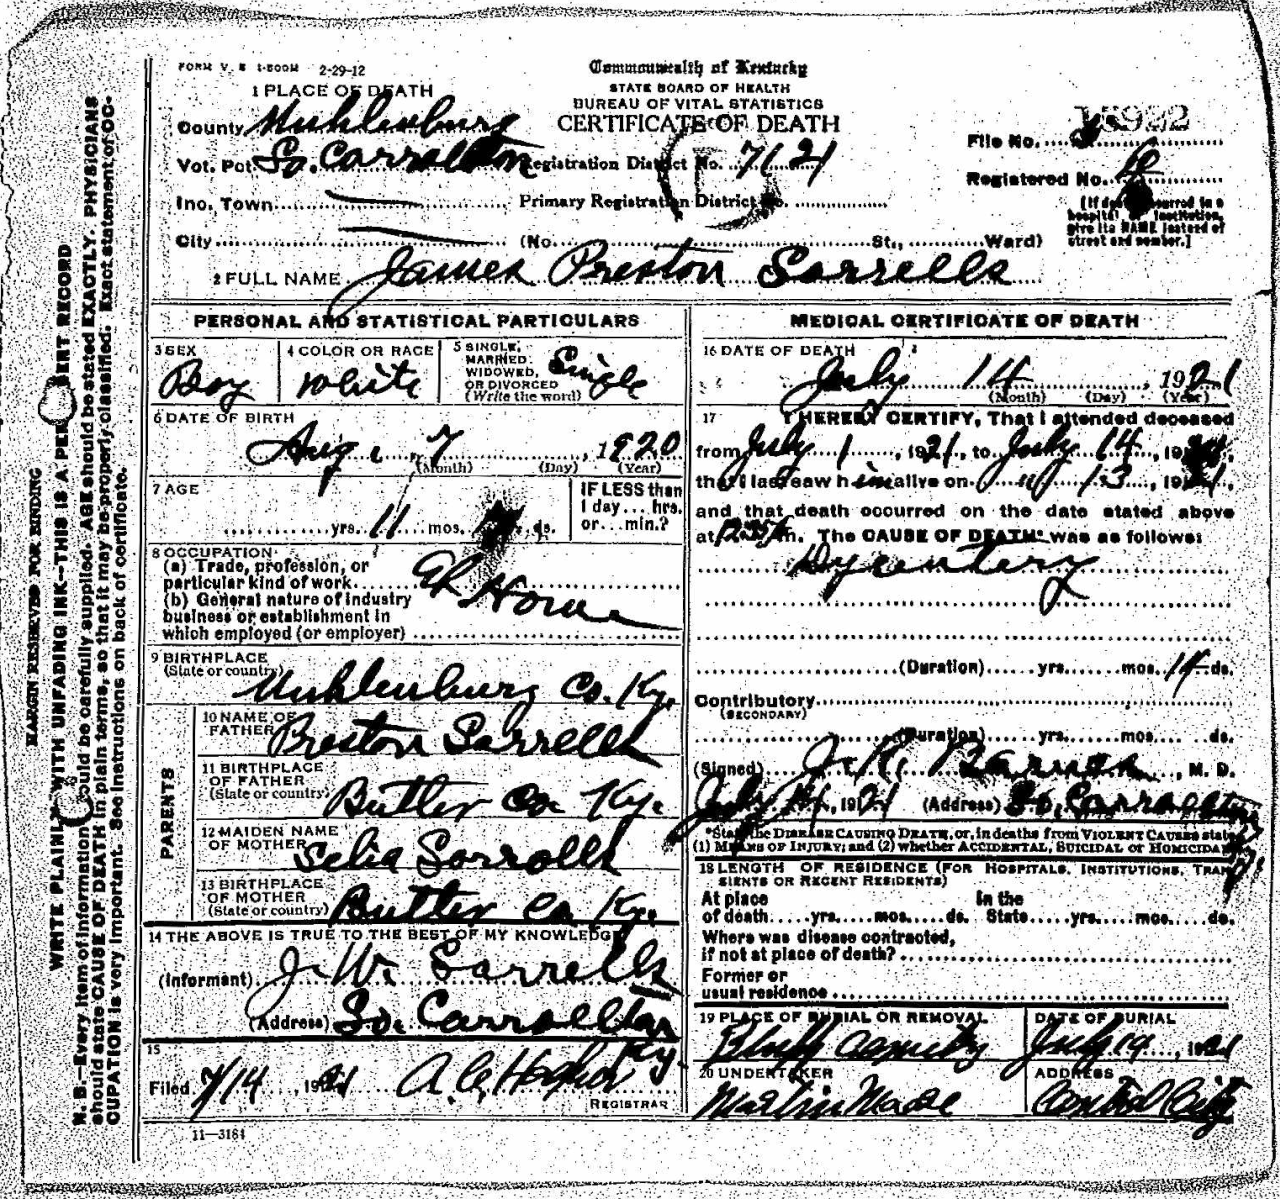 FORM V. S 1-500M 2-29-12
Commonwealth of Kentucky
STATE BOARD OF HEALTH
BUREAU OF VITAL STATISTICS
CERTIFICATE OF DEATH
1 PLACE OF DEATH
County Muhlenburg
Vot. Pct. So. Carrollton Registration District No. 7121
Inc. Town Primary Registration District No.
City (No. St., Ward)
File No. 15922
Registered No.
[If death occurred in a hospital or institution, give its NAME instead of street and number.]
2 FULL NAME James Preston Sorrells
PERSONAL AND STATISTICAL PARTICULARS
3 SEX Boy
4 COLOR OR RACE White
5 SINGLE, MARRIED, WIDOWED, OR DIVORCED (Write the word) Single
6 DATE OF BIRTH
Aug. 7, 1920
(Month) (Day) (Year)
7 AGE
yrs. 11 mos. ds.
IF LESS than 1 day... hrs. or... min.?
8 OCCUPATION
(a) Trade, profession, or particular kind of work At Home
(b) General nature of industry business or establishment in which employed (or employer)
9 BIRTHPLACE
(State or country) Muhlenburg Co. Ky.
PARENTS
10 NAME OF FATHER Preston Sorrells
11 BIRTHPLACE OF FATHER (State or country) Butler Co. Ky.
12 MAIDEN NAME OF MOTHER Selia Sorrells
13 BIRTHPLACE OF MOTHER (State or country) Butler Co Ky.
14 THE ABOVE IS TRUE TO THE BEST OF MY KNOWLEDGE
(Informant) J. W. Sorrells
(Address) So. Carrollton Ky.
15
Filed 7/14, 1921
REGISTRAR
11—3184
MEDICAL CERTIFICATE OF DEATH
16 DATE OF DEATH
July 14, 1921
(Month) (Day) (Year)
17 I HEREBY CERTIFY, That I attended deceased
from July 1, 1921, to July 14, 19
that I last saw him alive on 13, 1921,
and that death occurred on the date stated above
at m. The CAUSE OF DEATH* was as follows:
Dycentery
(Duration) yrs. mos. 14 ds.
Contributory
(SECONDARY)
(Duration) yrs. mos. ds.
(Signed) J. R. , M. D.
July 14, 1921 (Address) So. Carrollton Ky.
*State the DISEASE CAUSING DEATH, or, in deaths from VIOLENT CAUSES state
(1) MEANS OF INJURY; and (2) whether ACCIDENTAL, SUICIDAL or HOMICIDAL
18 LENGTH OF RESIDENCE (FOR HOSPITALS, INSTITUTIONS, TRANSIENTS OR RECENT RESIDENTS)
At place of death yrs. mos. ds. In the State yrs. mos. ds.
Where was disease contracted,
if not at place of death?
Former or
usual residence
19 PLACE OF BURIAL OR REMOVAL
DATE OF BURIAL
July, 1921
20 UNDERTAKER
Martin
ADDRESS
Central City
MARGIN RESERVED FOR BINDING
WRITE PLAINLY WITH UNFADING INK—THIS IS A PERMANENT RECORD
N. B.—Every item of information should be carefully supplied. AGE should be stated EXACTLY. PHYSICIANS
should state CAUSE OF DEATH in plain terms, so that it may be properly classified. Exact statement of OC-
CUPATION is very important. See instructions on back of certificate.